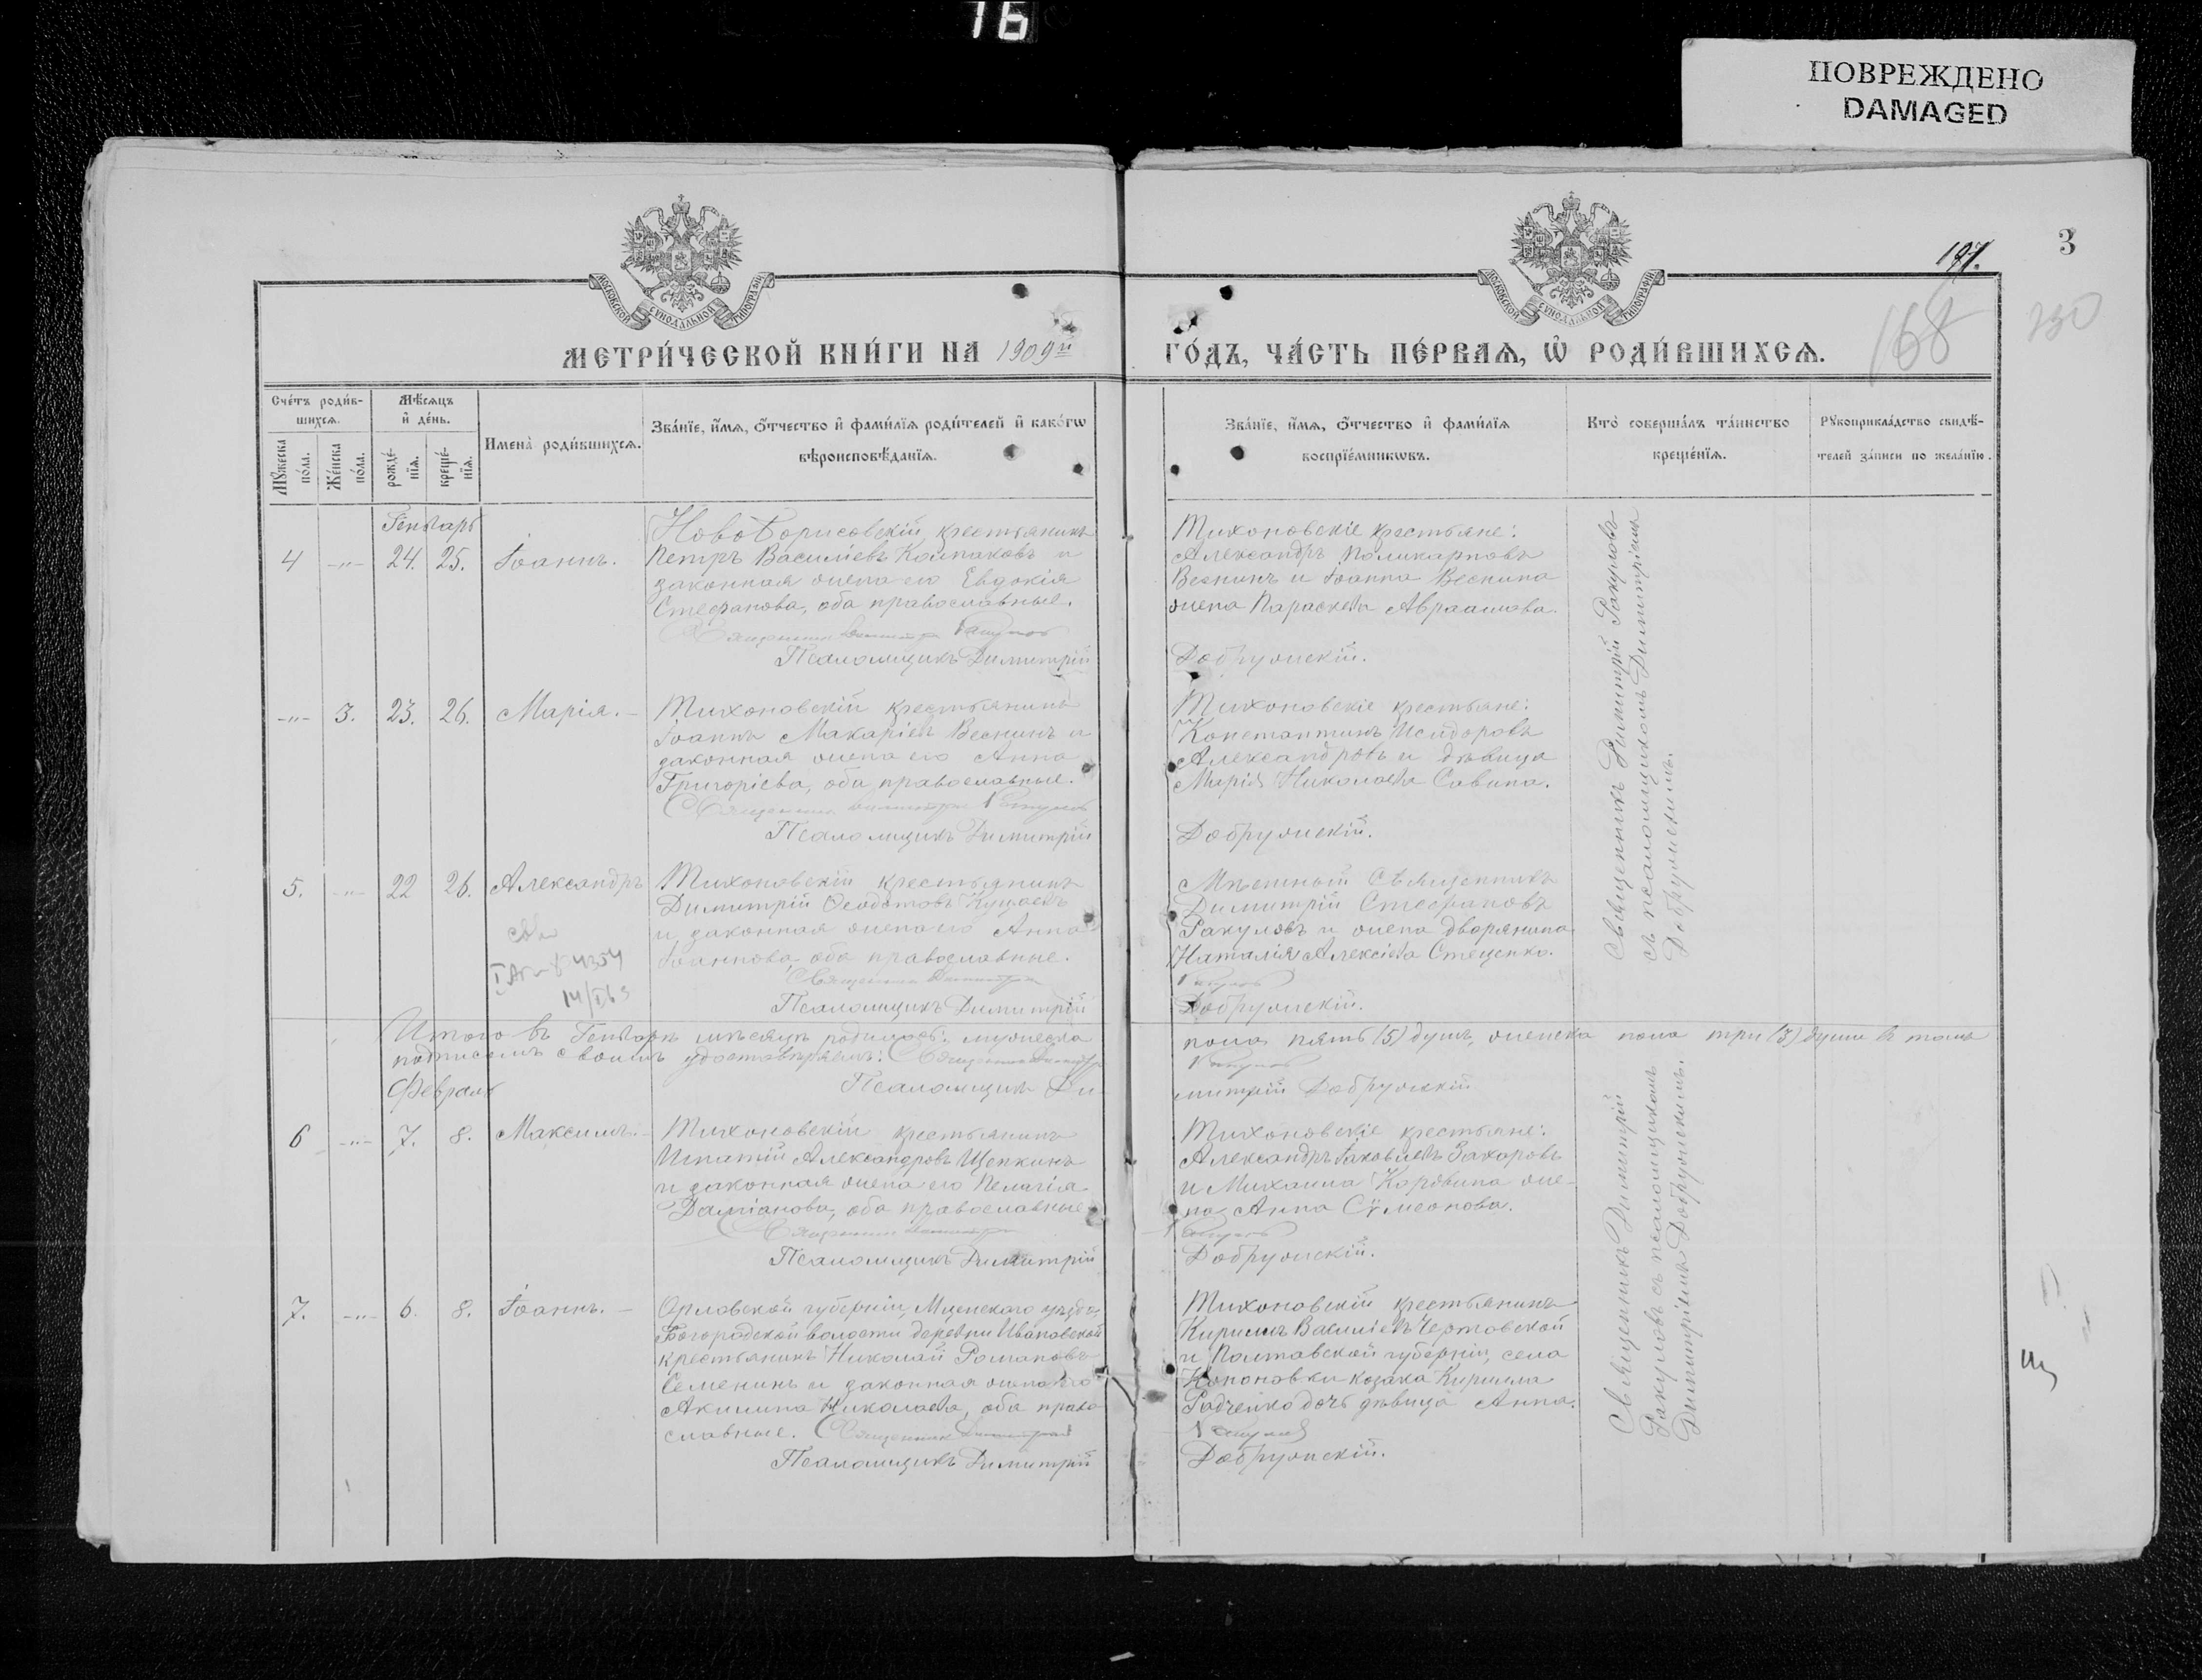 16
ПОВРЕЖДЕНО
DAMAGED
3
197.
168
230
МОСКОВСКОЙ СУНОДАЛЬНОЙ ТИПОГРАФІИ
МОСКОВСКОЙ СУНОДАЛЬНОЙ ТИПОГРАФІИ
МЕТРИ́ЧЕСКОЙ КНИ́ГИ НА 1909й
ГО́ДЪ, ЧА́СТЬ ПЕ́РВАѦ, Ѡ҆ РОДИ́ВШИХСѦ.
Сче́тъ роди́в-
шихсѧ.
Мꙋ́жеска по́ла.
Же́нска по́ла.
Мѣ́сѧцъ
и҆ де́нь.
рожде́-
нїѧ.
креще́-
нїѧ.
Имена̀ роди́вшихсѧ.
Зва́нїе, и҆́мѧ, ѻ҆́тчество и҆ фами́лїѧ роди́телей и҆ како́гѡ
вѣроисповѣ́данїѧ.
Зва́нїе, и҆́мѧ, ѻ҆́тчество и҆ фами́лїѧ
воспрїе́мникѡвъ.
Кто̀ соверша́лъ та́инство
креще́нїѧ.
Рꙋкоприкла́дство свидѣ́-
телей за́писи по жела́нїю.
Генварь
4 -"- 24. 25. Іоаннъ.
НовоБорисовскій крестьянинъ
Петръ Василіевъ Колпаковъ и
законная жена его Евдокія
Стефанова, оба православные.
Священникъ Димитрій Ракуловъ
Псаломщикъ Димитрій
Тихоновскіе крестьяне:
Александръ Поликарповъ
Веснинъ и Іоанна Веснина
жена Параскева Авраамова.
Добружскій.
-"- 3. 23. 26. Марія.
Тихоновскій крестьянинъ
Іоаннъ Макаріевъ Веснинъ и
законная жена его Анна
Григоріева, оба православные.
Священникъ Димитрій Ракуловъ
Псаломщикъ Димитрій
Тихоновскіе крестьяне:
Константинъ Исидоровъ
Александровъ и дѣвица
Марія Николаева Савина.
Добружскій.
Священникъ Димитрій Ракуловъ
съ псаломщикомъ Димитріемъ
Добружскимъ.
5. -"- 22 26. Александръ
14/I 63
Тихоновскій крестьянинъ
Димитрій Ѳеодотовъ
и законная жена его Анна
Іоаннова, оба православные.
Священникъ Димитрій
Псаломщикъ Димитрій
Мѣстный Священникъ
Димитрій Стефановъ
Ракуловъ и жена дворянина
Наталія Алексіева Стеценко.
Ракуловъ
Добружскій.
Итого въ Генварѣ мѣсяцѣ родилось: мужеска
пола пять (5) душъ, женска пола три (3) души въ томъ
подписомъ своимъ удостовѣряемъ: Священникъ Димитрій
Ракуловъ
Псаломщикъ Ди-
митрій Добружскій
Февраль
6 -"- 7. 8. Максимъ.
Тихоновскій крестьянинъ
Игнатій Александровъ Щепкинъ
и законная жена его Пелагія
Даміанова, оба православные
Священникъ Димитрій
Псаломщикъ Димитрій
Тихоновскіе крестьяне:
Александръ Іаковлевъ Захаровъ
и Михаила Кардвина же-
на Анна Сѵмеонова.
Ракуловъ
Добружскій.
7. -"- 6. 8. Іоаннъ.
Орловской губерніи, Мценскаго уѣзда,
Богородской волости деревни Ивановской
крестьянинъ Николай Романовъ
Семенинъ и законная жена его
Акилина Николаева, оба право-
славные. Священникъ Димитрій
Псаломщикъ Димитрій
Тихоновскій крестьянинъ
Кириллъ Василіевъ Чертовской
и Полтавской губерніи, села
Кононовки козака Кирилла
Радченко дочь дѣвица Анна.
Ракуловъ
Добружскій.
Священникъ Димитрій
Ракуловъ съ псаломщикомъ
Димитріемъ Добружскимъ.